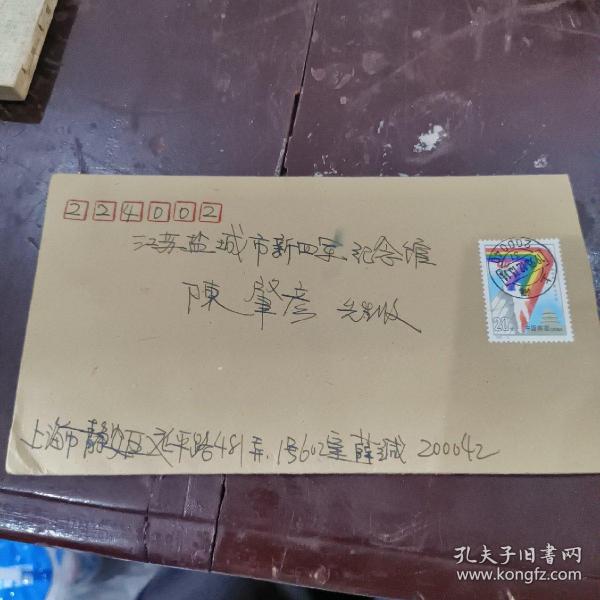 224002
江苏盐城市新四军纪念馆
陳肇彦 先生收
20分 中国邮政
上海市静安区延平路481弄1号602室 薛诚 200042
孔夫子旧书网
www.kongfz.com